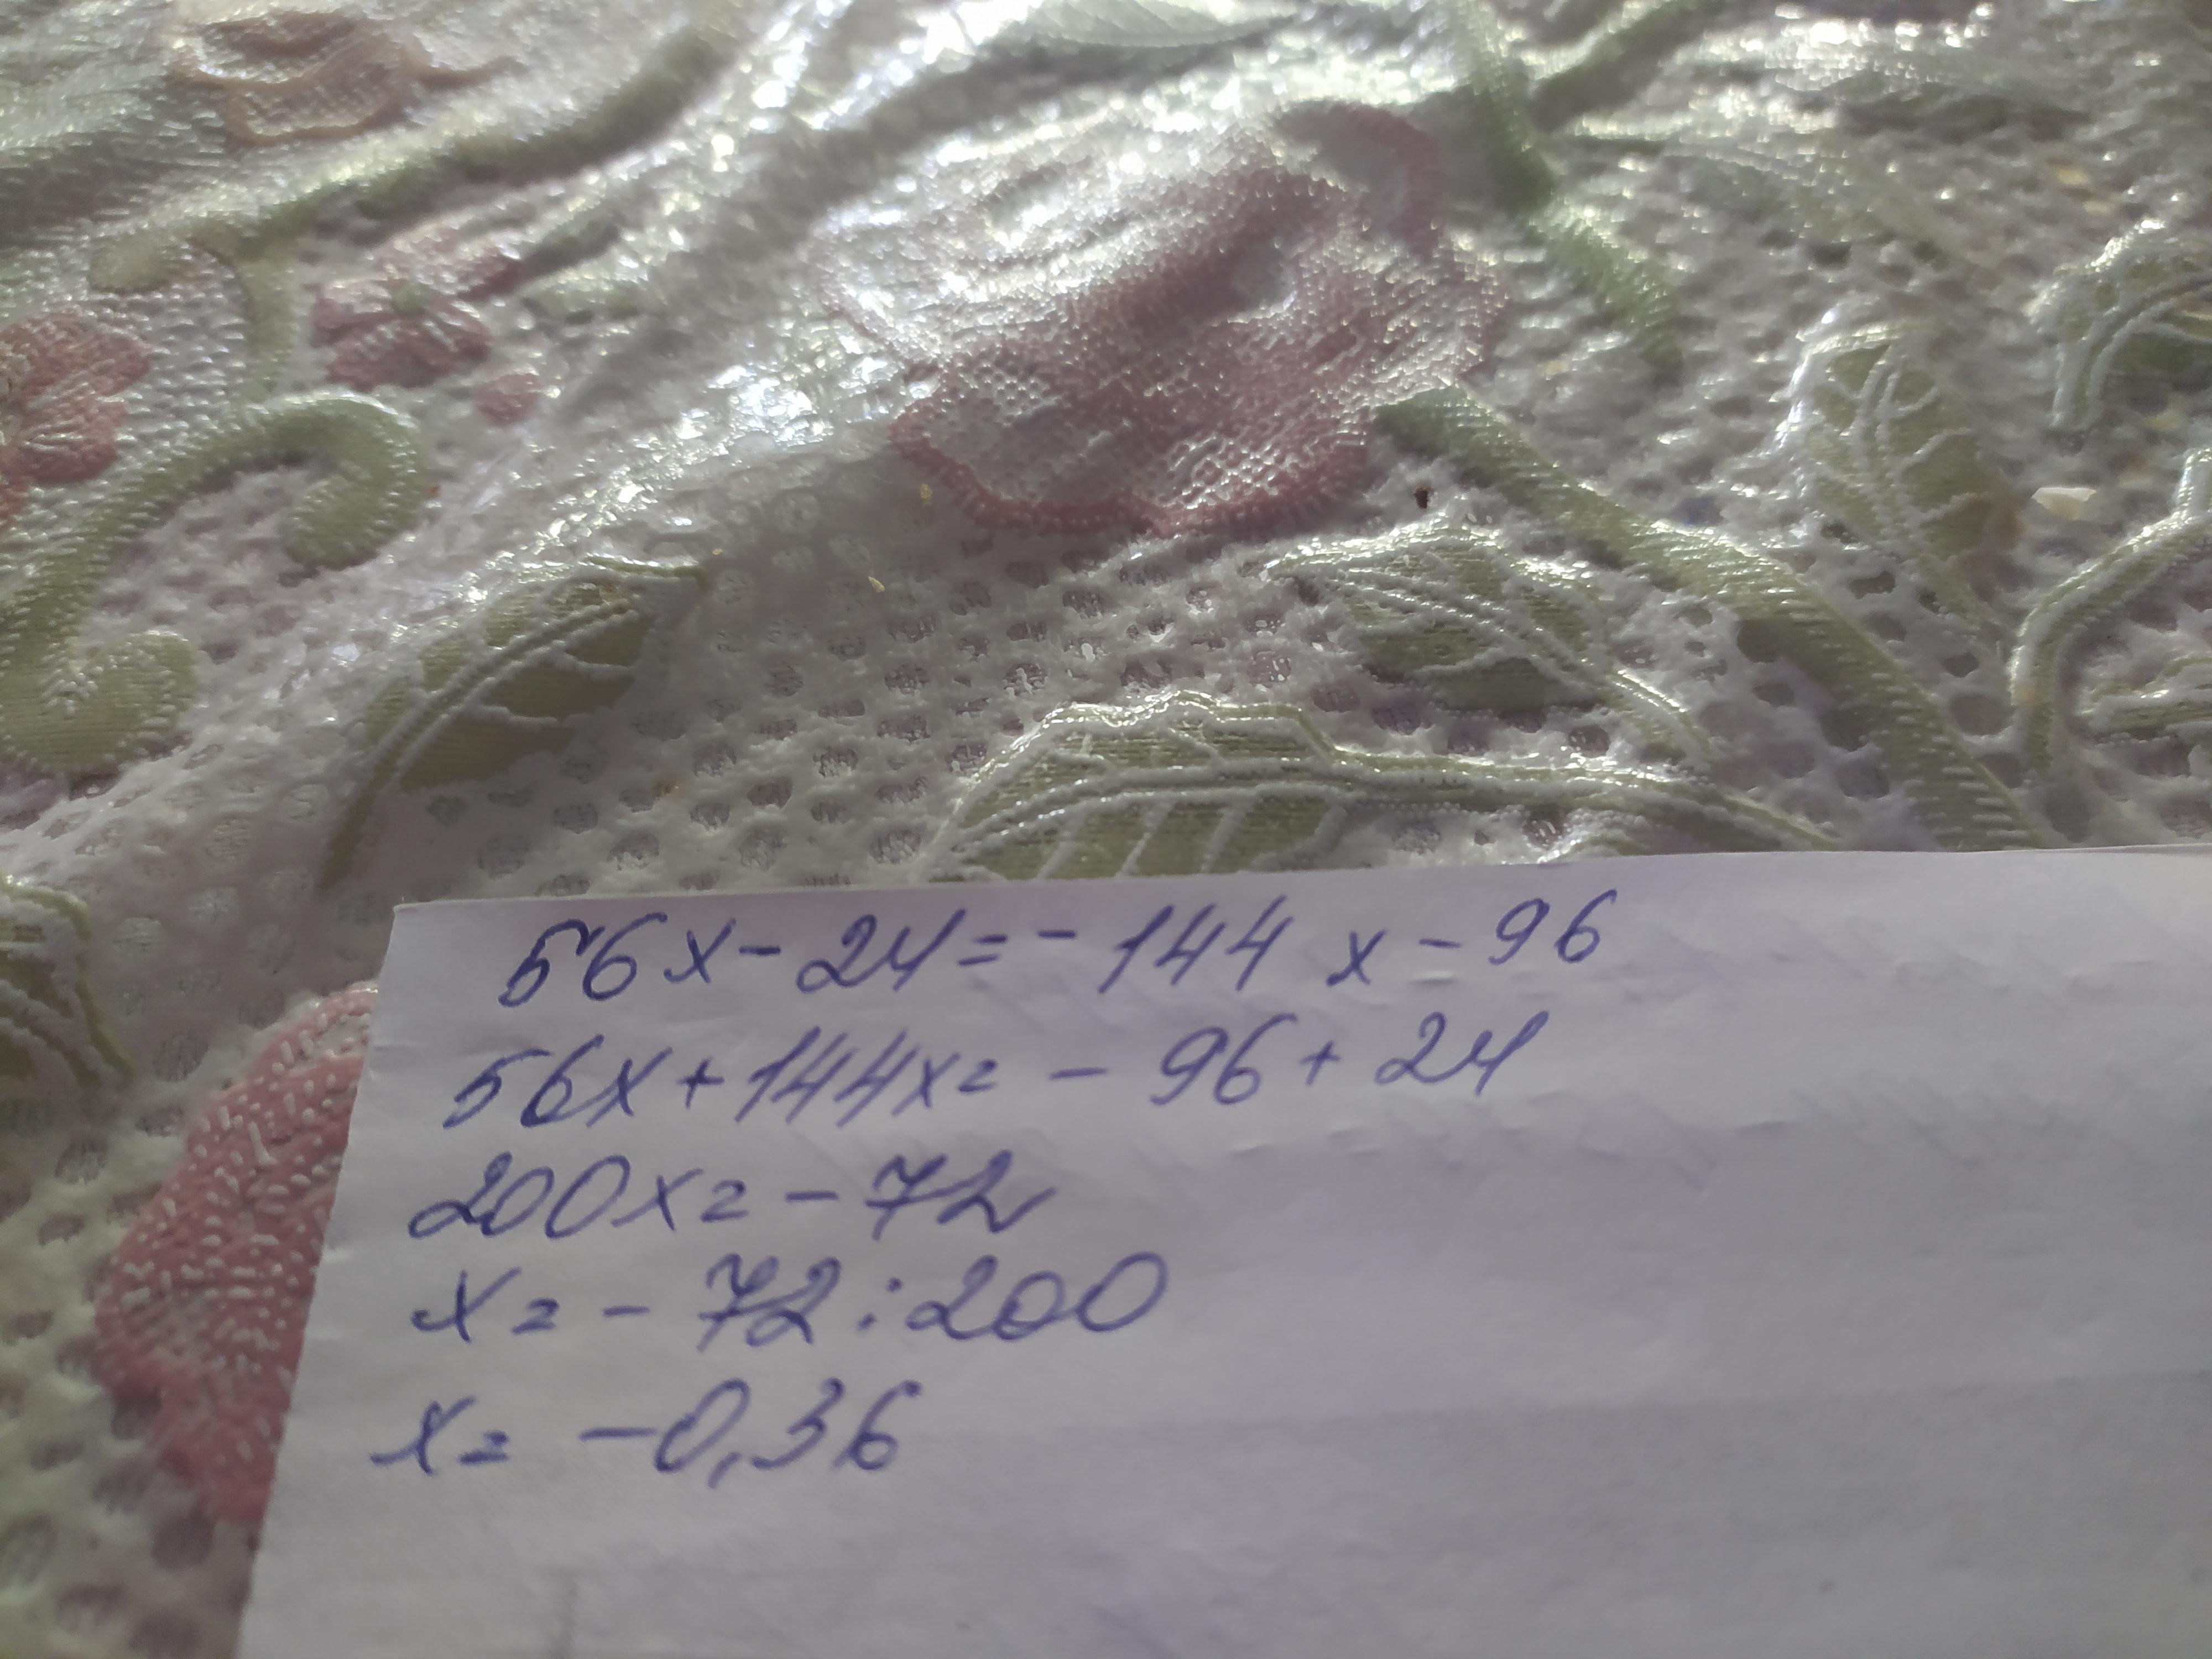 56x - 24 = - 144 x - 96
56x + 144x = - 96 + 24
200x = - 72
x = - 72 : 200
x = - 0,36